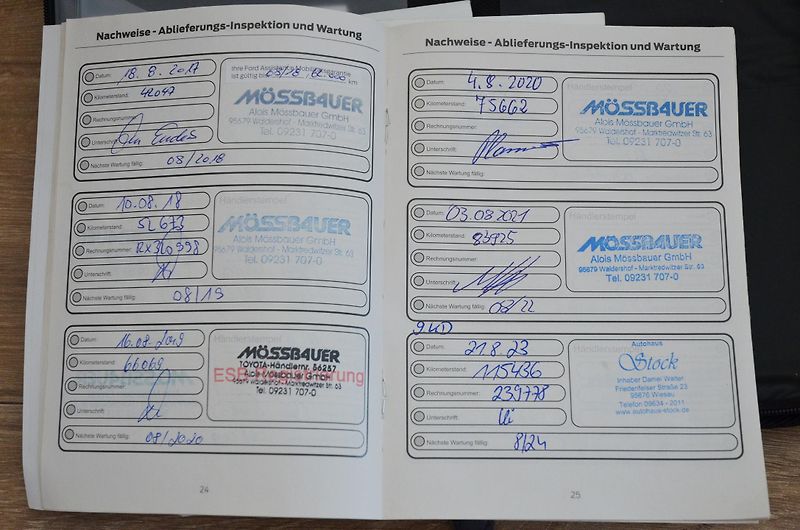 Nachweise - Ablieferungs-Inspektion und Wartung
Datum: 18.8.2017
Kilometerstand: 42047
Rechnungsnummer:
Unterschrift:
Nächste Wartung fällig: 08/2018
Ihre Ford Assistance Mobilitätsgarantie
ist gültig bis 08/18 km
MÖSSBAUER
Alois Mössbauer GmbH
95679 Waldershof - Marktredwitzer Str. 63
Tel. 09231 707-0
Datum: 10.08.18
Kilometerstand: 52673
Rechnungsnummer: RX310998
Unterschrift:
Nächste Wartung fällig: 08/19
Händlerstempel
MÖSSBAUER
Alois Mössbauer GmbH
95679 Waldershof - Marktredwitzer Str. 63
Tel. 09231 707-0
Datum: 16.08.2019
Kilometerstand: 66069
Rechnungsnummer:
Unterschrift:
Nächste Wartung fällig: 08/2020
Händlerstempel
MÖSSBAUER
TOYOTA-Händlernr. 56257
Alois Mössbauer GmbH
95679 Waldershof - Marktredwitzer Str. 63
Tel. 09231 707-0
24
Nachweise - Ablieferungs-Inspektion und Wartung
Datum: 4.8.2020
Kilometerstand: 75662
Rechnungsnummer:
Unterschrift:
Nächste Wartung fällig:
Händlerstempel
MÖSSBAUER
Alois Mössbauer GmbH
95679 Waldershof - Marktredwitzer Str. 63
Tel. 09231 707-0
Datum: 03.08.2021
Kilometerstand: 83925
Rechnungsnummer:
Unterschrift:
Nächste Wartung fällig: 08/22
Händlerstempel
MÖSSBAUER
Alois Mössbauer GmbH
95679 Waldershof - Marktredwitzer Str. 63
Tel. 09231 707-0
Datum: 21.8.23
Kilometerstand: 115436
Rechnungsnummer: 239778
Unterschrift:
Nächste Wartung fällig: 8/24
Autohaus
Stock
Inhaber Daniel Walter
Friedenfelser Straße 23
95676 Wiesau
Telefon 09634 - 2011
www.autohaus-stock.de
25